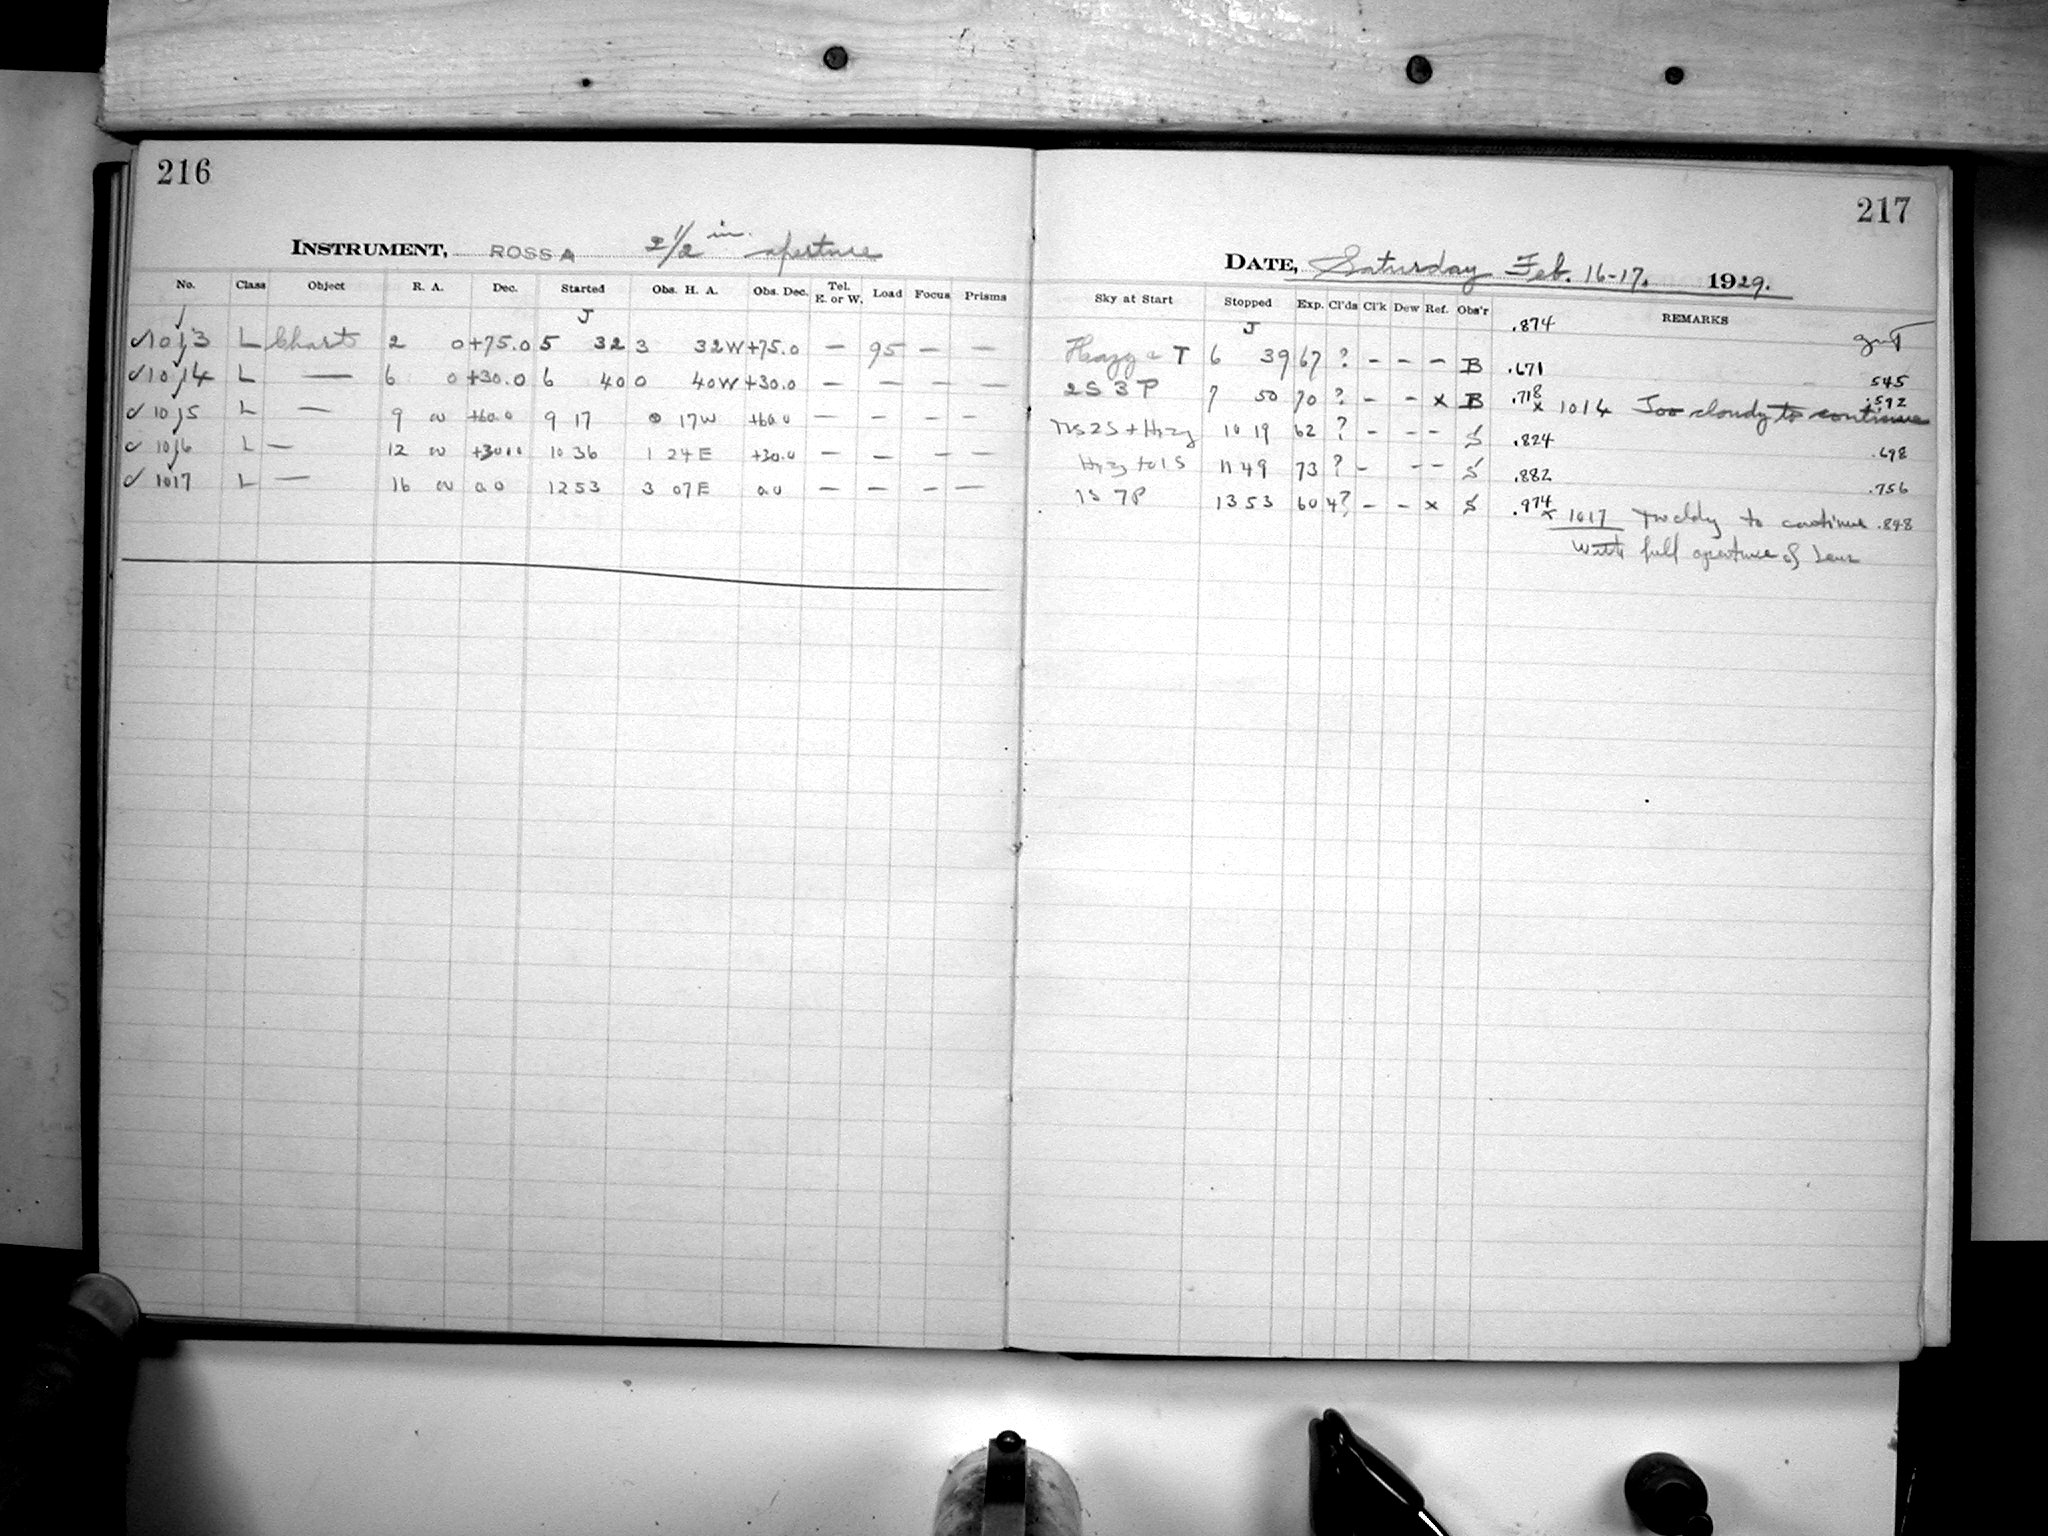 216
INSTRUMENT, ROSS A 2 1/2 in. aperture
No. Class Object R. A. Dec. Started Obs. H. A. Obs. Dec. Tel. E. or W. Load Focus Prisms
J
✓1013 L Charts 2 0 +75.0 5 32 3 32W +75.0 — 95 — —
✓1014 L — 6 0 +30.0 6 40 0 40W +30.0 — — — —
✓1015 L — 9 +60.0 9 17 0 17W +60.0 — — — —
✓1016 L — 12 +30.0 10 36 1 24E +30.0 — — — —
✓1017 L — 16 0.0 12 53 3 07E 0.0 — — — —
217
DATE, Saturday Feb. 16-17. 1929.
Sky at Start Stopped Exp. Cl'ds Cl'k Dew Ref. Obs'r REMARKS
J .874
T 6 39 67 ? – – – B .671 545
2S 3P 7 50 70 ? – – x B .718 .592
x 1014 Too cloudy to continue
2S + Hzy 10 19 62 ? – – – S .824 .698
Hzy to 1S 11 49 73 ? – – – S .882 .756
1S 7P 13 53 60 4? – – x S .974 .848
x 1017 to continue
With full aperture of Lens